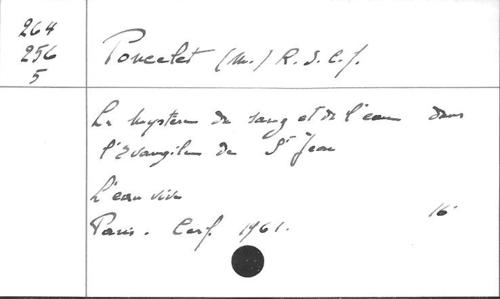 264
256
5
Poncelet (M.) R.S.C.J.
Le Mystère du sang et de l'eau dans
l'Evangile de St Jean
L'eau vive
Paris. Cerf. 1961. 16°